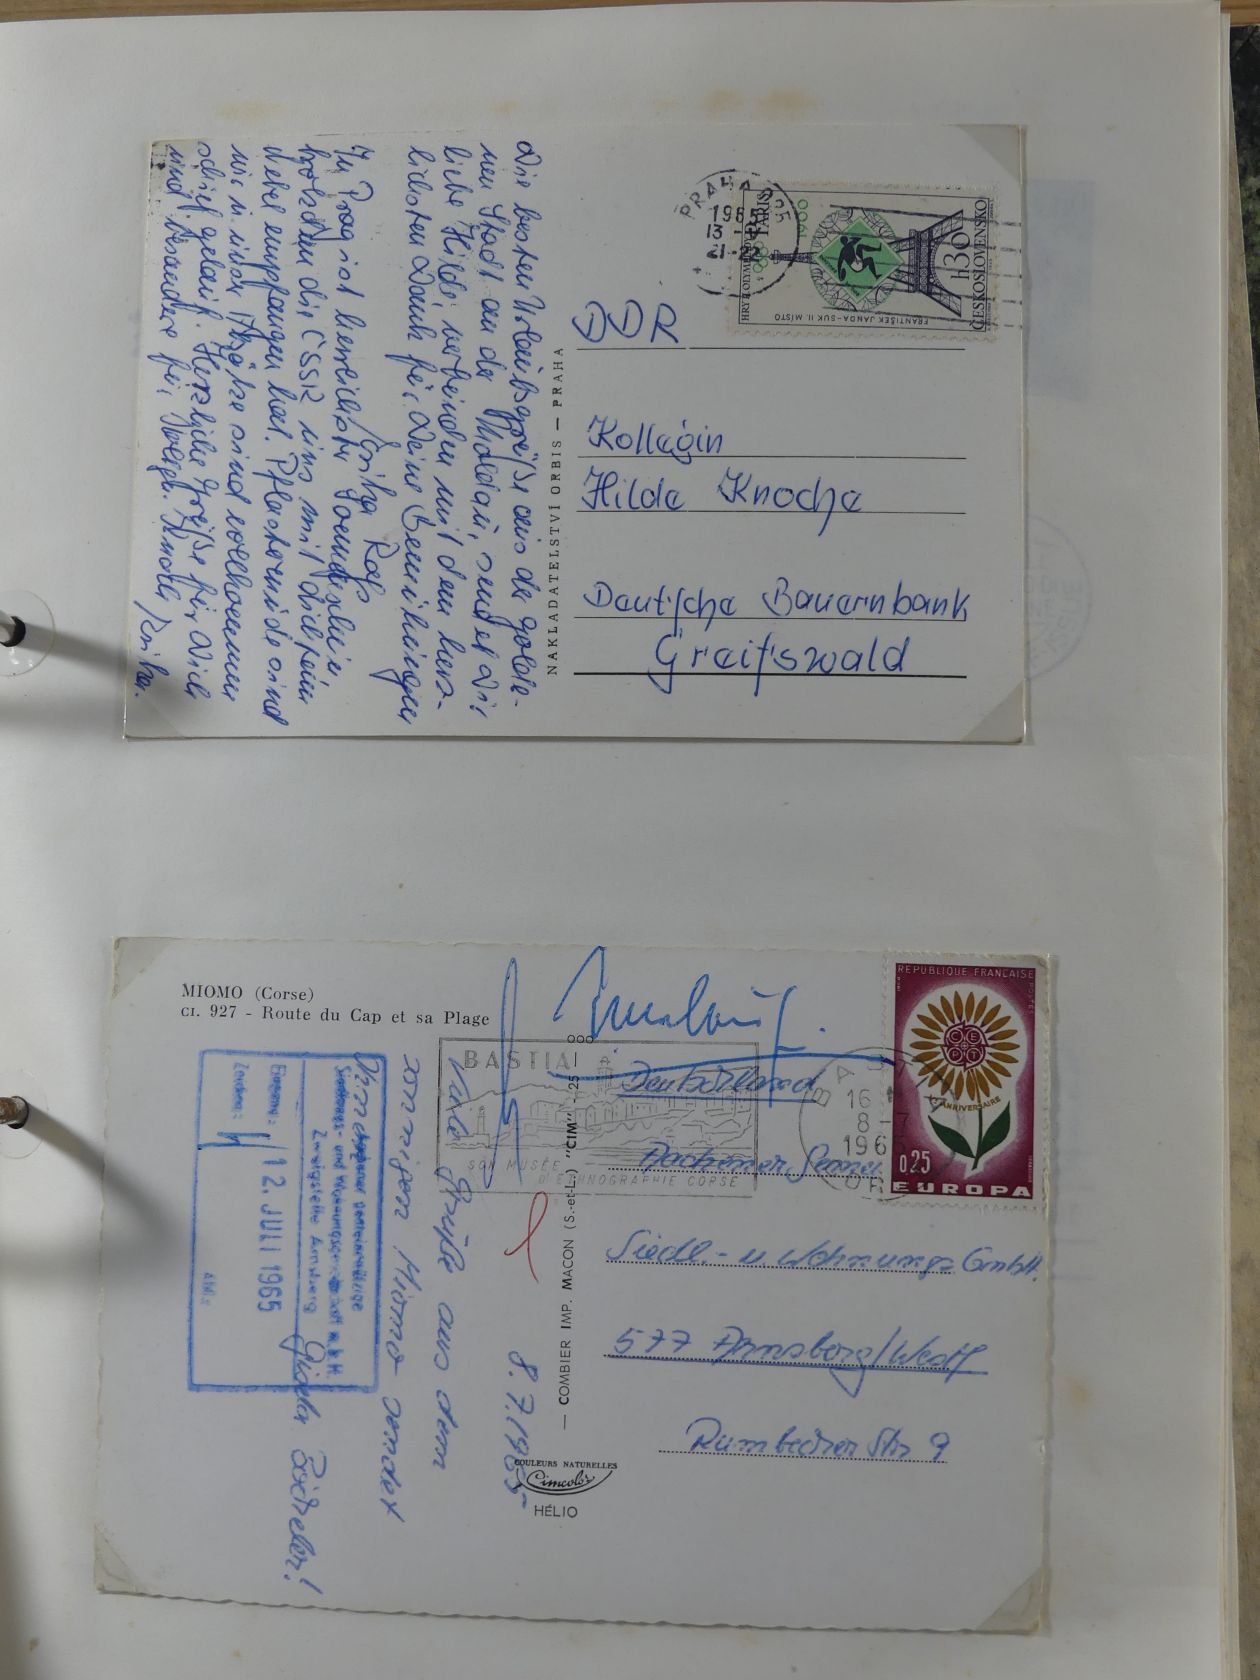 Die besten Urlaubsgrüße aus der golde-
nen Stadt an der Moldau, sendet Dir
liebe Hilde, verbunden mit dem herz-
lichsten Dank für Deine Bemühungen
Erika Rolf
In Prag ist herrlichster Sonnenschein
trotzdem die ČSSR uns mit
Nebel empfangen hat. Pflastermüde sind
wir u. unsere Absätze sind vollkommen
schief gelauf. Herzliche Grüße für Dich
und besonders für Kolleg. Erika.
NAKLADATELSTVÍ ORBIS — PRAHA
PRAHA
196
13
21-22
HRY II. OLYMPIADY PARIS
1900 1900
FRANTIŠEK JANDA-SUK II. MÍSTO
1.30 h
ČESKOSLOVENSKO
DDR
Kollegin
Hilde Knoche
Deutsche Bauernbank
Greifswald
MIOMO (Corse)
CI. 927 - Route du Cap et sa Plage
8.7.1965
Viele Grüße aus dem
sonnigen Miomo sendet
Ihnen
Gisela
Aachener gemeinnützige
Siedlungs- und Wohnungsges. m.b.H.
Zweigstelle Arnsberg
Eingang:
12. JULI 1965
Zeichen:
— COMBIER IMP. MACON (S.-et-L.) "CIM"
COULEURS NATURELLES
Cimcolor
HÉLIO
BASTIA
SON MUSÉE
D'ETHNOGRAPHIE CORSE
16
8-7
196
REPUBLIQUE FRANÇAISE
POSTES
CEPT
Vᵉ ANNIVERSAIRE
0,25
EUROPA
Deutschland
Aachener Gemei.
Siedl.- u. Wohnungs GmbH.
577 Arnsberg/Westf
Rumbecker Str 9